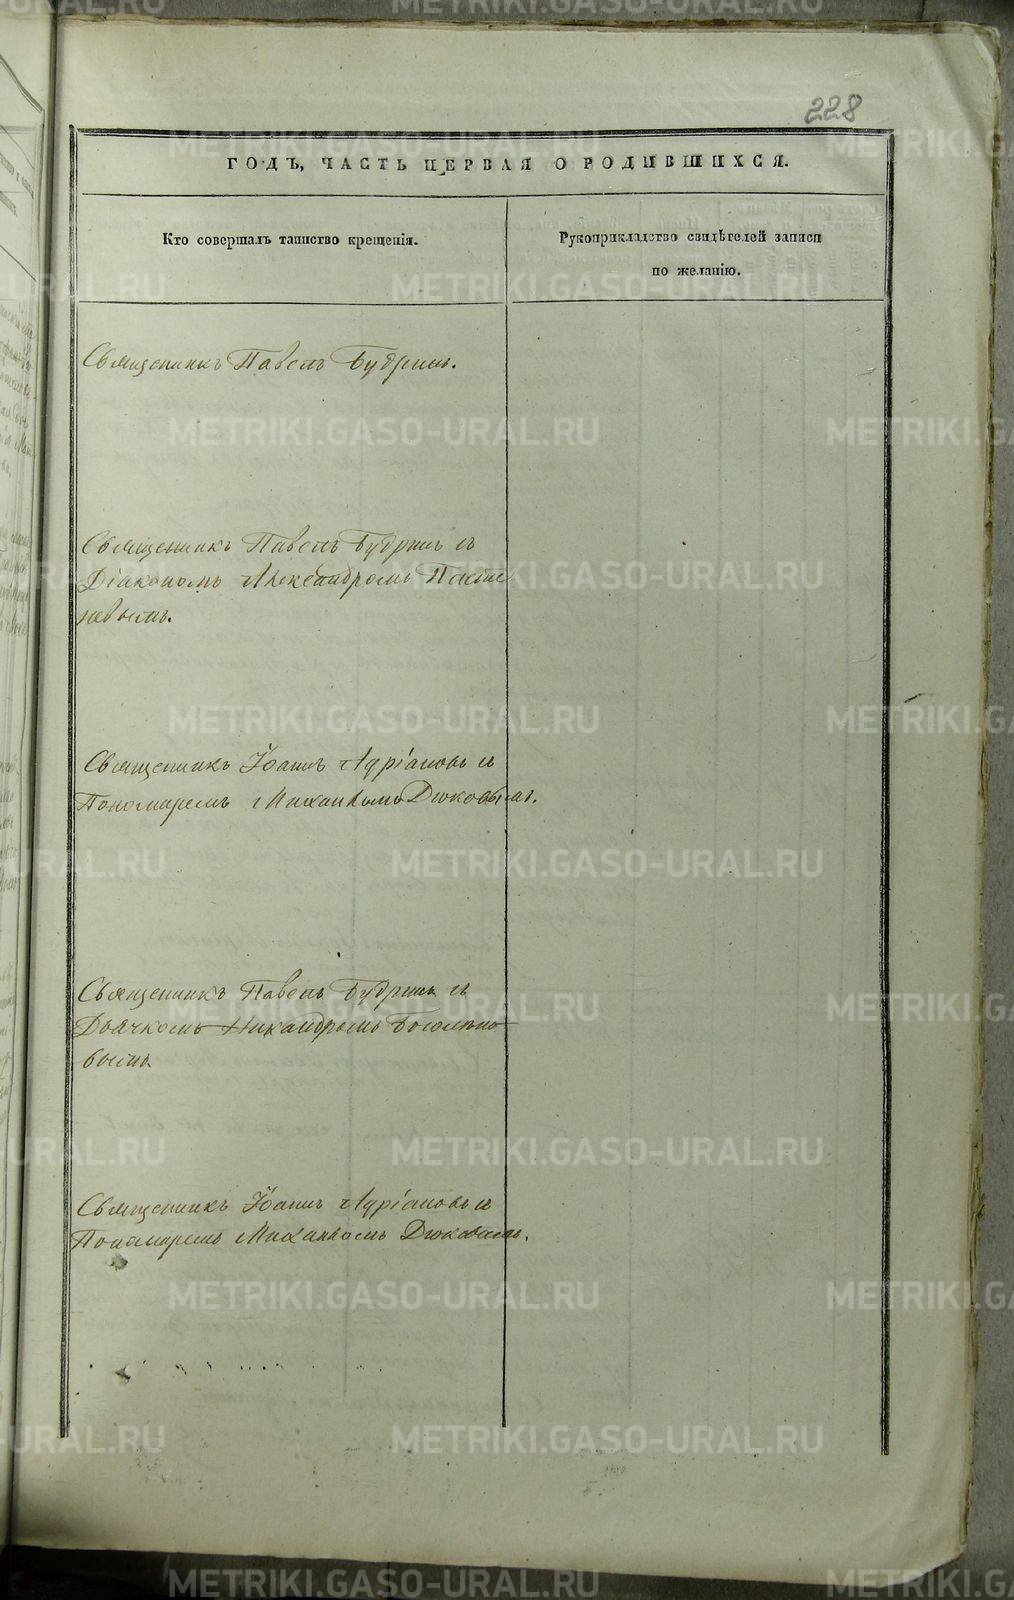 228
ГОДЪ, ЧАСТЬ ПЕРВАЯ О РОДИВШИХСЯ.
Кто совершалъ таинство крещенія.
Рукоприкладство свидѣтелей записи
по желанію.
Священникъ Павелъ Будринъ.
Священникъ Павелъ Будринъ съ
Діакономъ Александромъ
Священникъ Іоаннъ Адріановъ и
Пономаремъ Михаиломъ Дюковымъ.
Священникъ Павелъ Будринъ съ
Дьячкомъ Никандромъ Боголѣпо
вымъ.
Священникъ Іоаннъ Адріановъ и
Пономаремъ Михаиломъ Дюковымъ.
METRIKI.GASO-URAL.RU